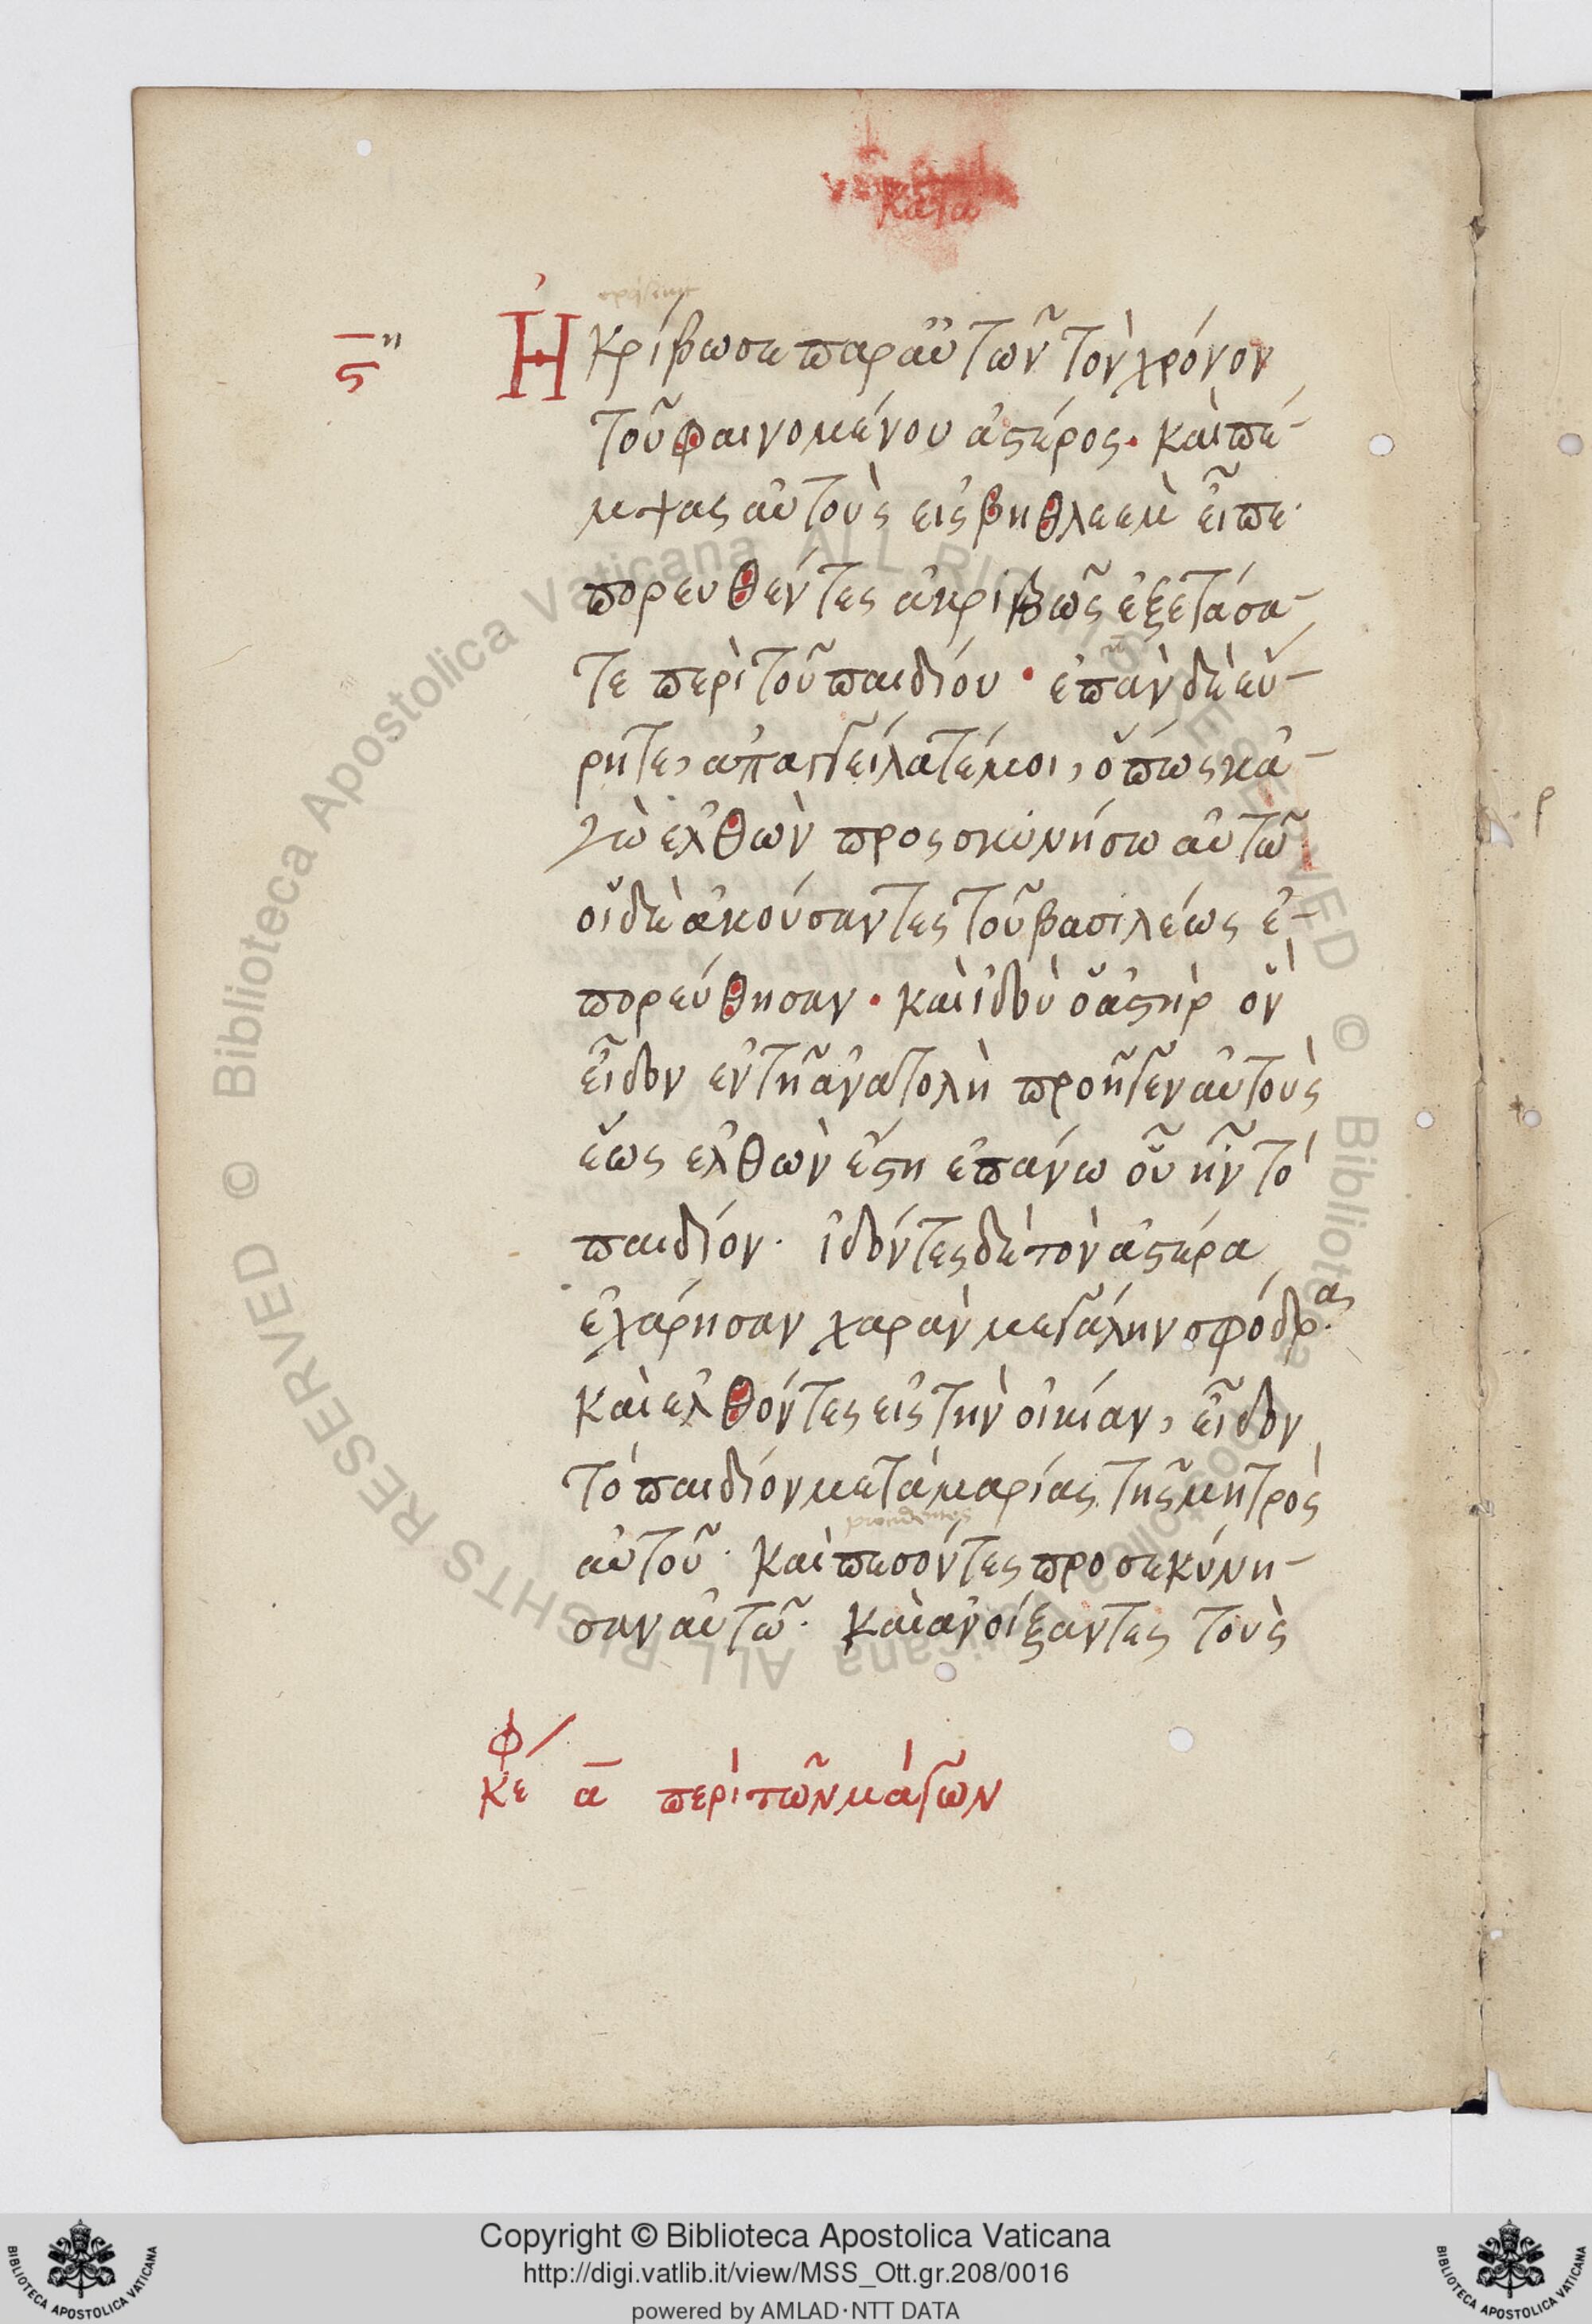 κατα
ς η
Ἠκρίβωσε παρ αὐτῶν τὸν χρόνον
τοῦ φαινομένου ἀστέρος· καὶ πέ-
μψας αὐτοὺς εἰς βηθλεεμ εἶπε·
πορευθέντες ἀκριβῶς ἐξετάσα-
τε περὶ τοῦ παιδίου · ἐπὰν δὲ εὕ-
ρητε, ἀπαγγείλατέ μοι, ὅπως κἀ-
γὼ ἐλθὼν προσκυνήσω αὐτῶ
οἱ δὲ ἀκούσαντες τοῦ βασιλέως ἐ-
πορεύθησαν · καὶ ἰδοὺ ὁ ἀστὴρ ὃν
εἶδον ἐν τῆ ἀνατολὴ προῆγεν αὐτοὺς
ἕως ἐλθὼν ἔστη ἐπάνω οὗ ἦν τὸ
παιδίον · ἰδόντες δὲ τὸν ἀστέρα
ἐχάρησαν χαρὰν μεγάλην σφόδρα·
καὶ ἐλθόντες εἰς τὴν οἰκίαν, εἶδον
τὸ παιδίον μετὰ μαρίας τῆς μητρὸς
procidentes
αὐτοῦ · καὶ πεσόντες προσεκύνη-
σαν αὐτῶ · καὶ ἀνοίξαντες τοὺς
φ
κε α περὶ τῶν μάγων
© Biblioteca Apostolica Vaticana ALL RIGHTS RESERVED © Biblioteca Apostolica Vaticana ALL RIGHTS RESERVED
Copyright © Biblioteca Apostolica Vaticana
http://digi.vatlib.it/view/MSS_Ott.gr.208/0016
powered by AMLAD·NTT DATA
BIBLIOTECA APOSTOLICA VATICANA
BIBLIOTECA APOSTOLICA VATICANA